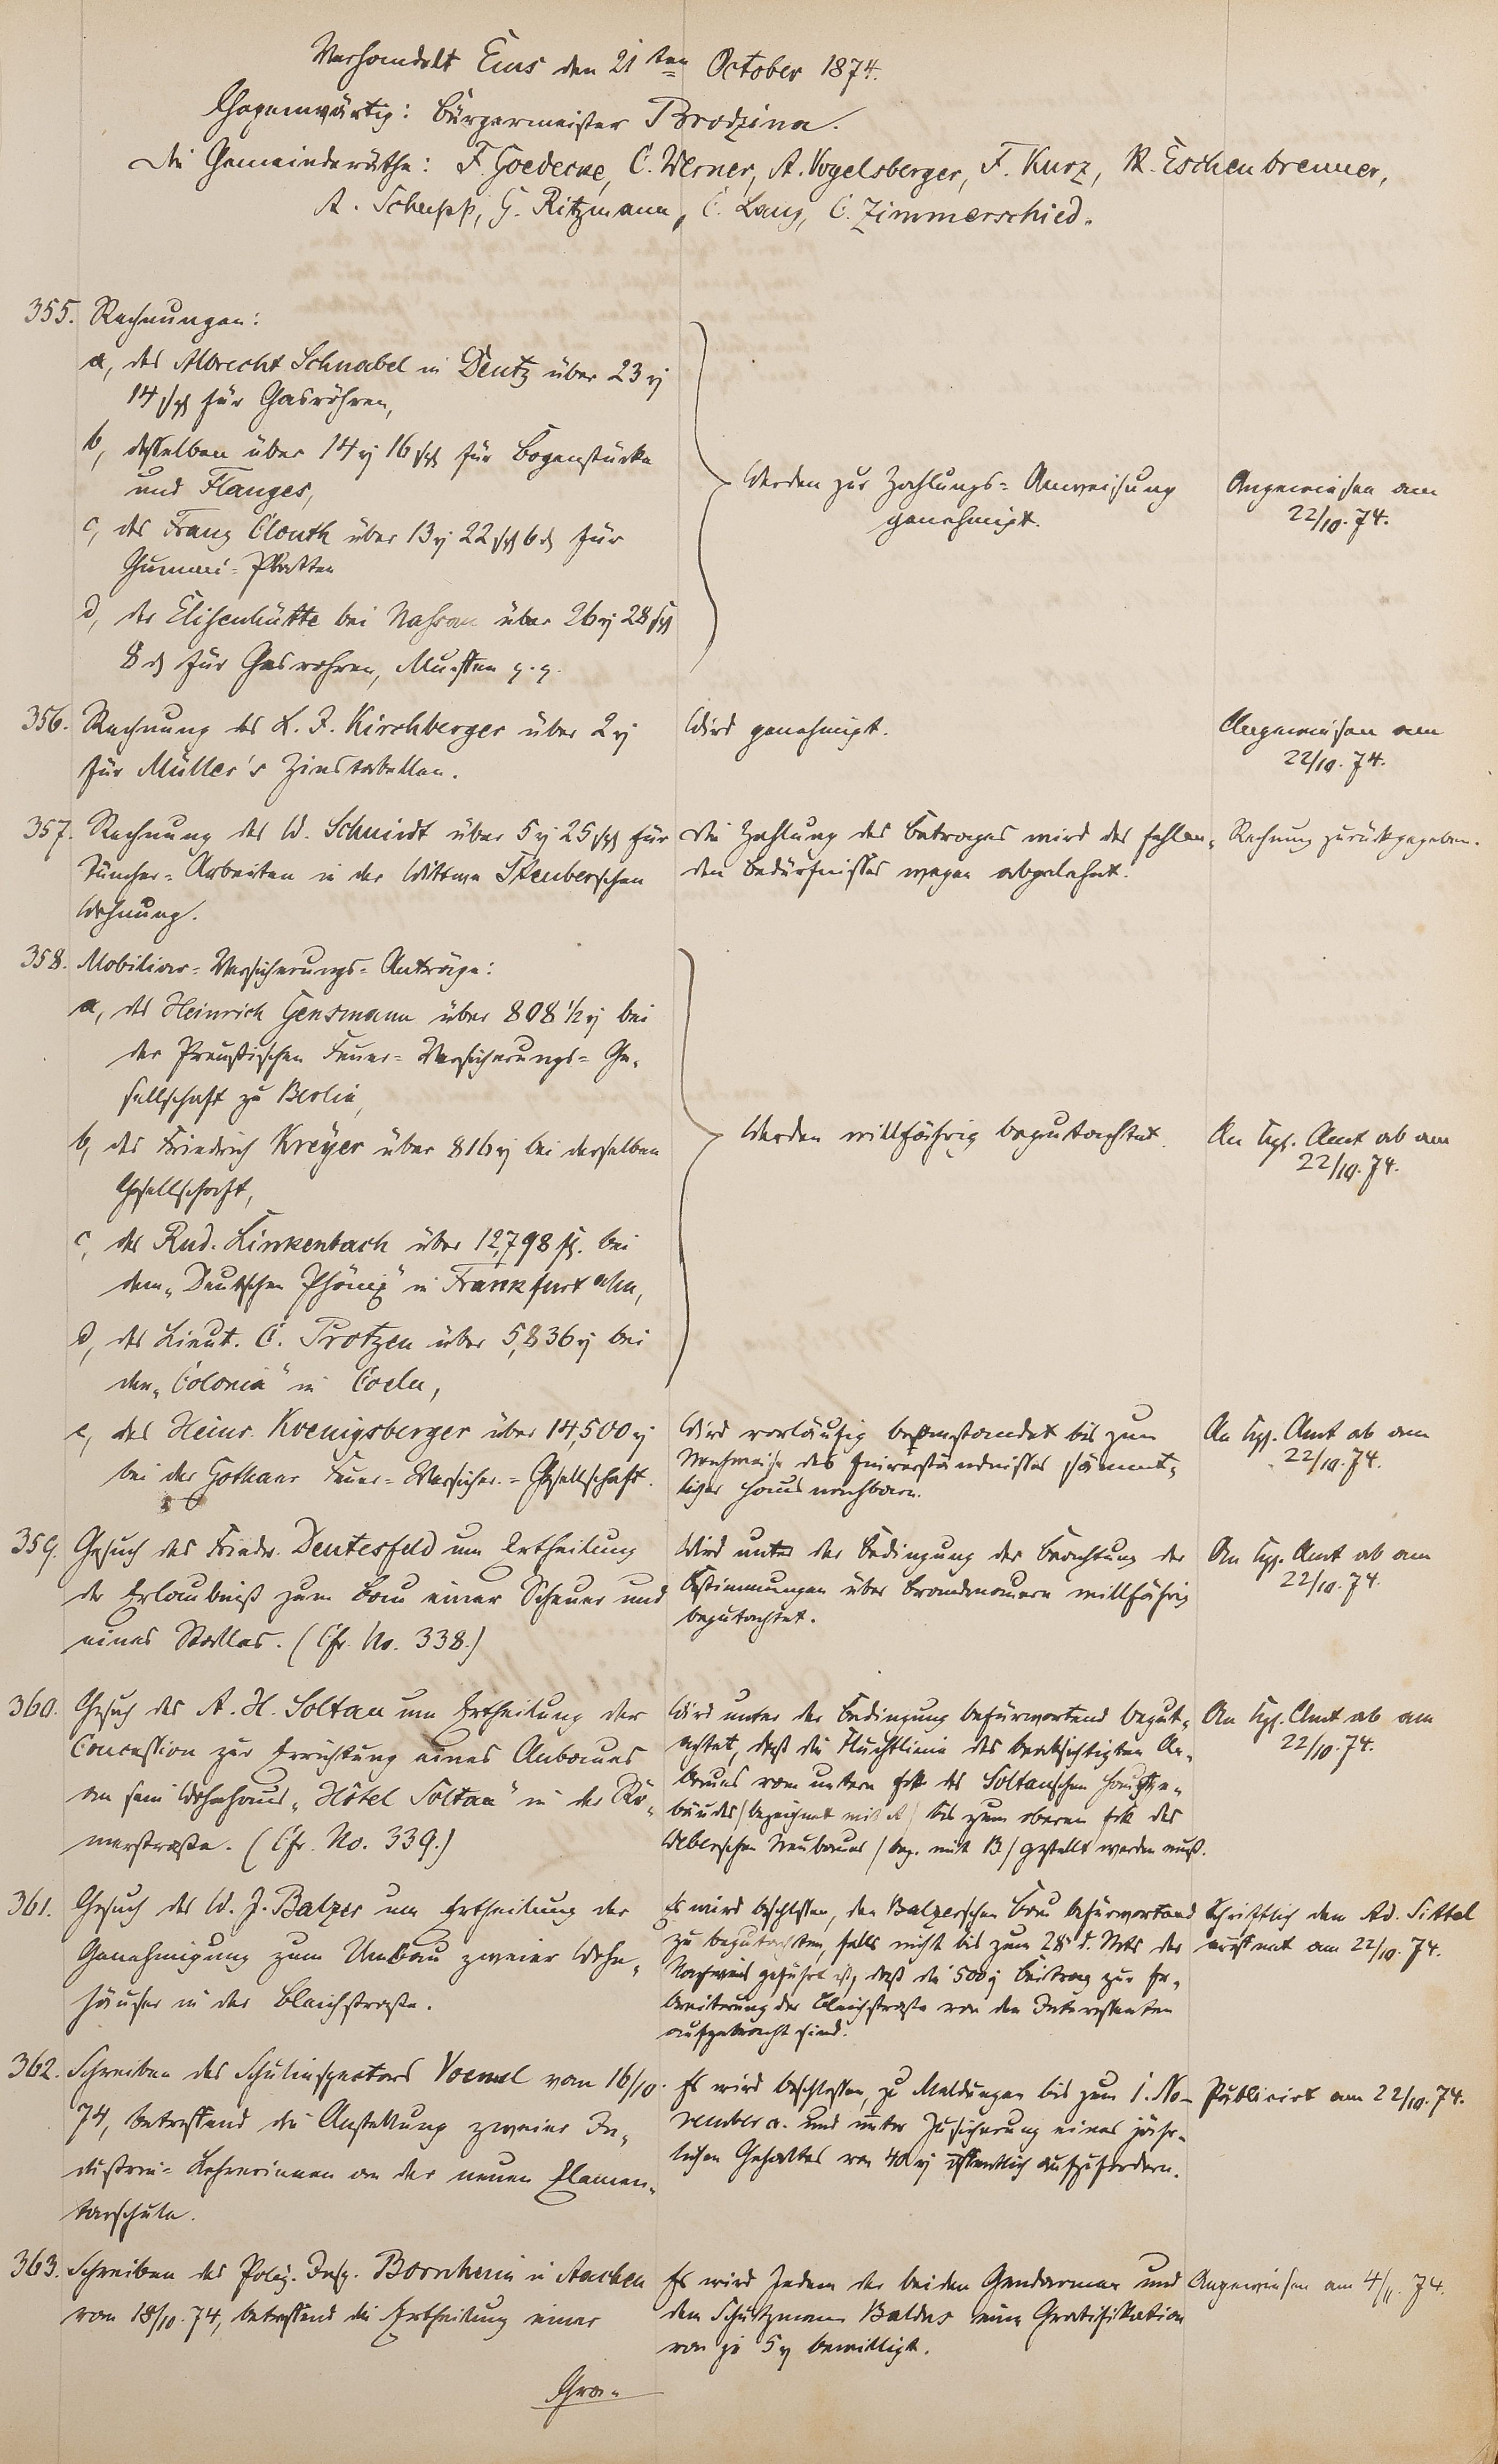 Verhandelt Ems den 21ten October 1874.
Gegenwärtig: Bürgermeister Brodzina.
Die Gemeinderäthe: F. Goedecke, C. Werner, A. Vogelsberger, F. Kurz, R. Eschenbrenner,
A. Schupp, G. Ritzmann, C. Lang, C. Zimmerschied.
355. Rechnungen:
a, des Albrecht Schnabel in Deutz über 23
14 für Gasröhren,
b, desselben über 14 16 für Bogenstücke
und Flanges,
c, des Franz Clouth über 13 22 6 für
Gummi-Platten
d, der Elisenhütte bei Nassau über 26 28
8 für Gasrohren, Muffen
Werden zur Zahlungs-Anweisung
genehmigt.
Angewiesen am
22/10. 74.
356. Rechnung des L. J. Kirchberger über 2
für Müller's Zinstabellen.
Wird genehmigt.
Angewiesen am
22/10. 74.
357. Rechnung des W. Schmidt über 5 25 für
Tüncher-Arbeiten in der Wittwe Steuberschen
Wohnung.
Die Zahlung des Betrages wird des fehlen-
den Bedürfnisses wegen abgelehnt.
Rechnung zurückgegeben.
358. Mobiliar-Versicherungs-Anträge:
a, des Heinrich Gensmann über 808 1/2 bei
der Preußischen Feuer-Versicherungs-Ge-
sellschaft zu Berlin,
b, des Friedrich Kreyer über 816 bei derselben
Gesellschaft,
c, des Rud. Linkenbach über 12,798 fl. bei
dem "Deutschen Phönix" in Frankfurt a/m,
d, des Lieut. C. Protzen über 5,836 bei
der "Colonia" in Coeln,
Werden willfährig begutachtet.
An Kgl. Amt ab am
22/10. 74.
e, des Heinr. Koenigsberger über 14,500
bei der Gothaer Feuer-Versicher.-Gesellschaft.
Wird vorläufig beanstandet bis zum
Nachweise des Einverständnisses sämmt-
licher Hausnachbarn.
An Kgl. Amt ab am
22/10. 74.
359. Gesuch des Friedr. Deutesfeld um Ertheilung
der Erlaubniß zum Bau einer Scheuer und
eines Stalles. (Cfr. No. 338.)
Wird unter der Bedingung der Beachtung der
Bestimmungen über Brandmauern willfährig
begutachtet.
An Kgl. Amt ab am
22/10. 74.
360. Gesuch des A. H. Soltau um Ertheilung der
Concession zur Errichtung eines Anbaues
an sein Wohnhaus "Hôtel Soltau" in der Rö-
merstraße. (Cfr. No. 339.)
Wird unter der Bedingung befürwortend begut-
achtet, daß die Fluchtlinie des beabsichtigten An-
baues vom untern Eck des Soltauschen Hausge-
bäudes (bezeichnet mit A) bis zum oberen Eck des
Weberschen Neubaues (bez. mit B) gestellt werden muß.
An Kgl. Amt ab am
22/10. 74.
361. Gesuch des W. J. Balzer um Ertheilung der
Genehmigung zum Umbau zweier Wohn-
häuser in der Bleichstraße.
Es wird beschlossen, den Balzerschen Bau befürwortend
zu begutachten, falls nicht bis zum 28 d. Mts der
Nachweis geführt ist, daß die 500 Beitrag zur Er-
breiterung der Bleichstraße von den Interessenten
aufgebracht sind.
Schriftlich dem Ad. Sittel
eröffnet am 22/10. 74.
362. Schreiben des Schulinspectors Voemel vom 16/10.
74, betreffend die Anstellung zweier In-
dustrie-Lehrerinnen an der neuen Elemen-
tarschule.
Es wird beschlossen, zu Meldungen bis zum 1. No-
vember c. und unter Zusicherung eines jähr-
lichen Gehaltes von 40 öffentlich aufzufordern.
Publicirt am 22/10. 74.
363. Schreiben des Poliz. Insp. Bornheim in Aachen
vom 18/10. 74, betreffend die Ertheilung einer
Es wird Jedem der beiden Gendarmen und
dem Schutzmann Baldus eine Gratifikation
von je 5 bewilligt.
Angewiesen am 4/11. 74.
Gra-